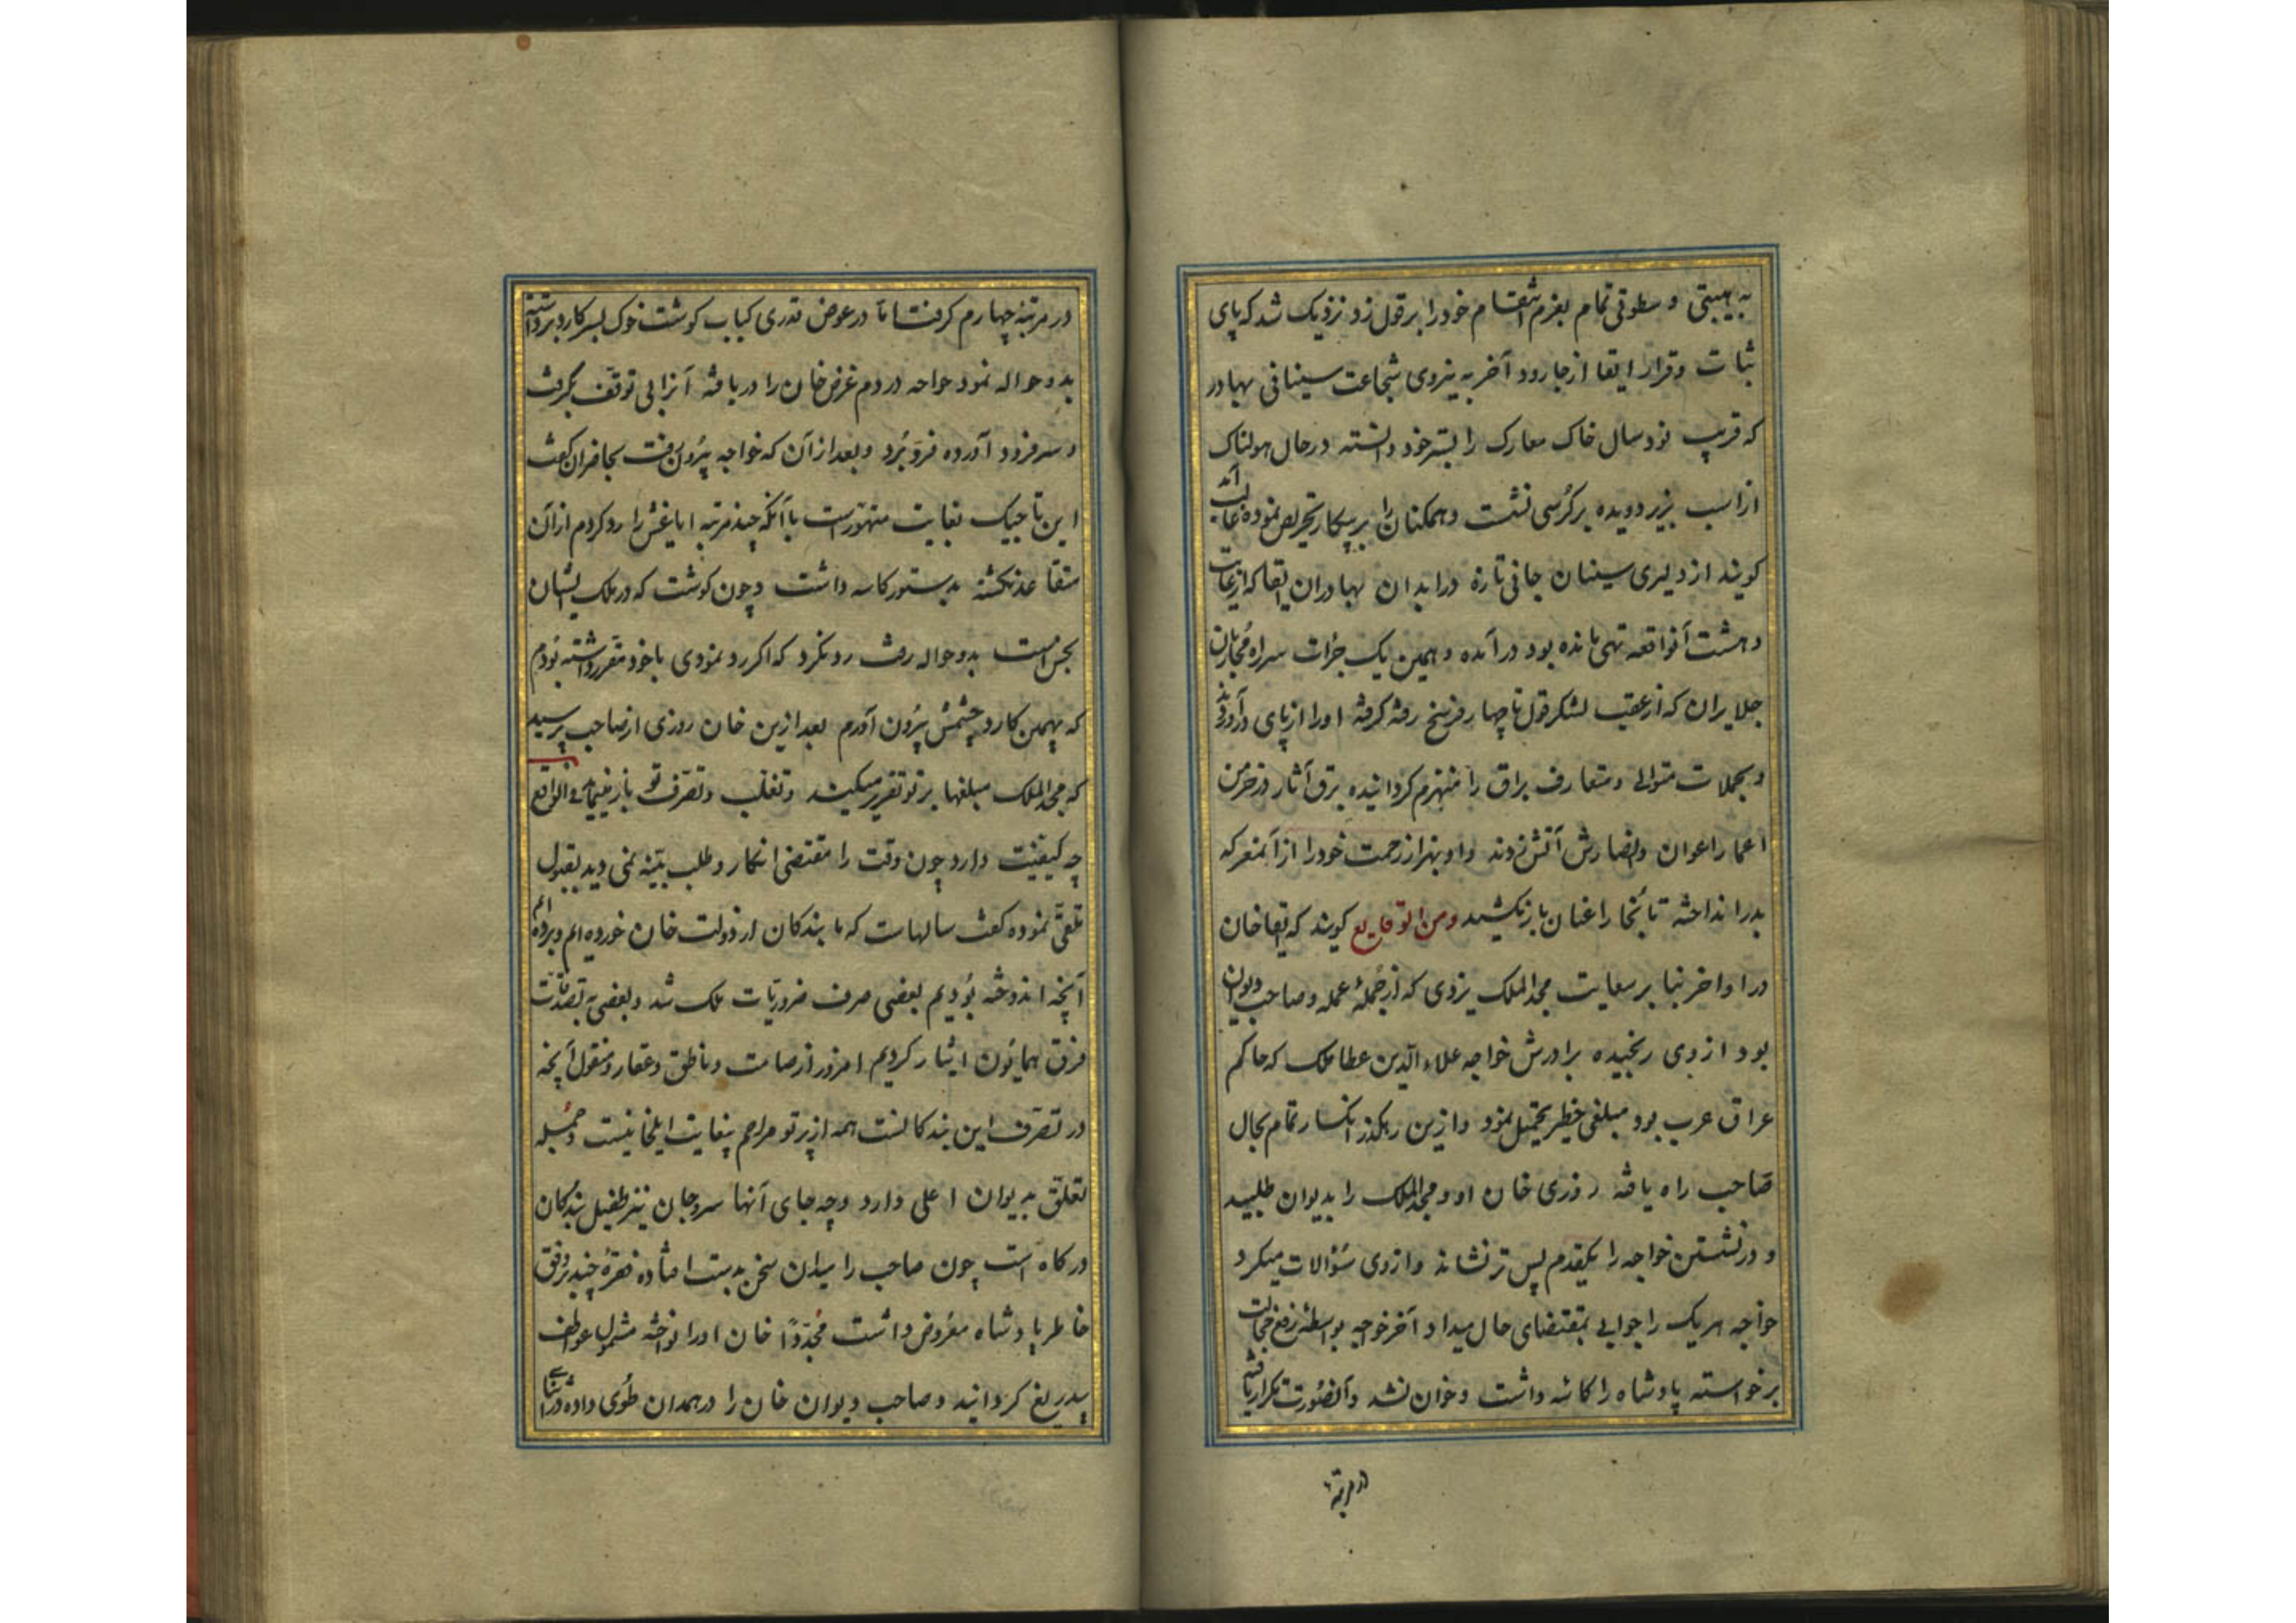 به هیبتی و سطوتی تمام بعزم انتقام خود را بر قول زد نزدیک شد که پای
ثبات و قرار ابقا از جا رود آخر به نیروی شجاعت سینای بهادر
که قریب نود سال خاک معارک را بستر خود دانسته در حال هولناک
از اسب بزیر دویده بر کرسی نشست و همکنان را بر پیکار تحریص نموده غالب آمد
کویند از دلیری سینان جانی تازه در ابدان بهادران ابقا که از غایت
دهشت آنواقعه تهی مانده بود در آمده و بهمین یک جرات سر راه
جلایران که از عقب لشکر قول تا چهار فرسخ رفته کرفته او را از پای در آوردند
و بحملات متوالی و متعارف براق را منهزم کردانیده برق آثار در خرمن
اعمار اعوان و انصارش آتش زدند و او بهزار زحمت خود را از آنمعرکه
بدر انداخته تا بخارا عنان باز نکشید ومن الوقایع کویند که ابقا خان
در اواخر بنا بر سعایت مجد الملک یزدی که از جملهٔ عمله و صاحب دیوان
بود از وی رنجیده برادرش خواجه علاء الدین عطا ملک که حاکم
عراق عرب بود مبلغی خطیر تحمیل نمود و ازین رهکذر انکسار تمام بحال
صاحب راه یافته روزی خان او و مجد الملک را بدیوان طلبید
و در نشستن خواجه را یکقدم پس تر نشاند و از وی سؤالات میکرد
خواجه هر یک را جوابی بمقتضای حال میداد آخر خواجه بواسطهٔ رفع خجالت
برخواسته پادشاه را کاسه داشت و خوان نشد و آنصورت تکرار یافته
در مرتبه
در مرتبهٔ چهارم کرفت اما در عوض قدری کباب کوشت خوک بسر کارد برداشته
بدو حواله نمود خواجه در دم غرض خان را دریافته آنرا بی توقف بکرفت
و سر فرود آورده فرو برد و بعد از آن که خواجه بیرون رفت بحاضران کفت
این تاجیک بغایت متهورست با آنکه چند مرتبه ایاغش را رد کردم از آن
متقاعد نکشته بدستور کاسه داشت و چون کوشت که در ملک ایشان
نجس است بدو حواله رفت رد نکرد که اکر رد نمودی با خود مقرر داشته بودم
که بهمین کارد چشمش بیرون آورم بعد ازین خان روزی از صاحب پرسید
که مجد الملک مبلغها بر تو تقریر میکند و تغلب و تصرف تو باز مینماید فی الواقع
چه کیفیت دارد چون وقت را مقتضی انکار و طلب بینه نمی دید بقبول
تلقی نموده کفت سالهاست که ما بندکان از دولت خان خورده ایم و برده ایم
آنچه اندوخته بودیم بعضی صرف ضروریات ملک شد و بعضی به تصدقات
فرق همایون ایثار کردیم امروز از صامت و ناطق و عقار و منقول آنچه
در تصرف این بندکانست همه از پرتو مراحم بیغایت ایلخانیست و جمله
تعلق بدیوان اعلی دارد و چه جای آنها سر و جان نیز طفیل بندکان
درکاه است چون صاحب را میدان سخن بدست افتاده فقرهٔ چند بر وفق
خاطر پادشاه معروض داشت مجددا خان او را نواخته مشمول عواطف
بیدریغ کردانید و صاحب دیوان خان را در همدان طوی داده در اثنای